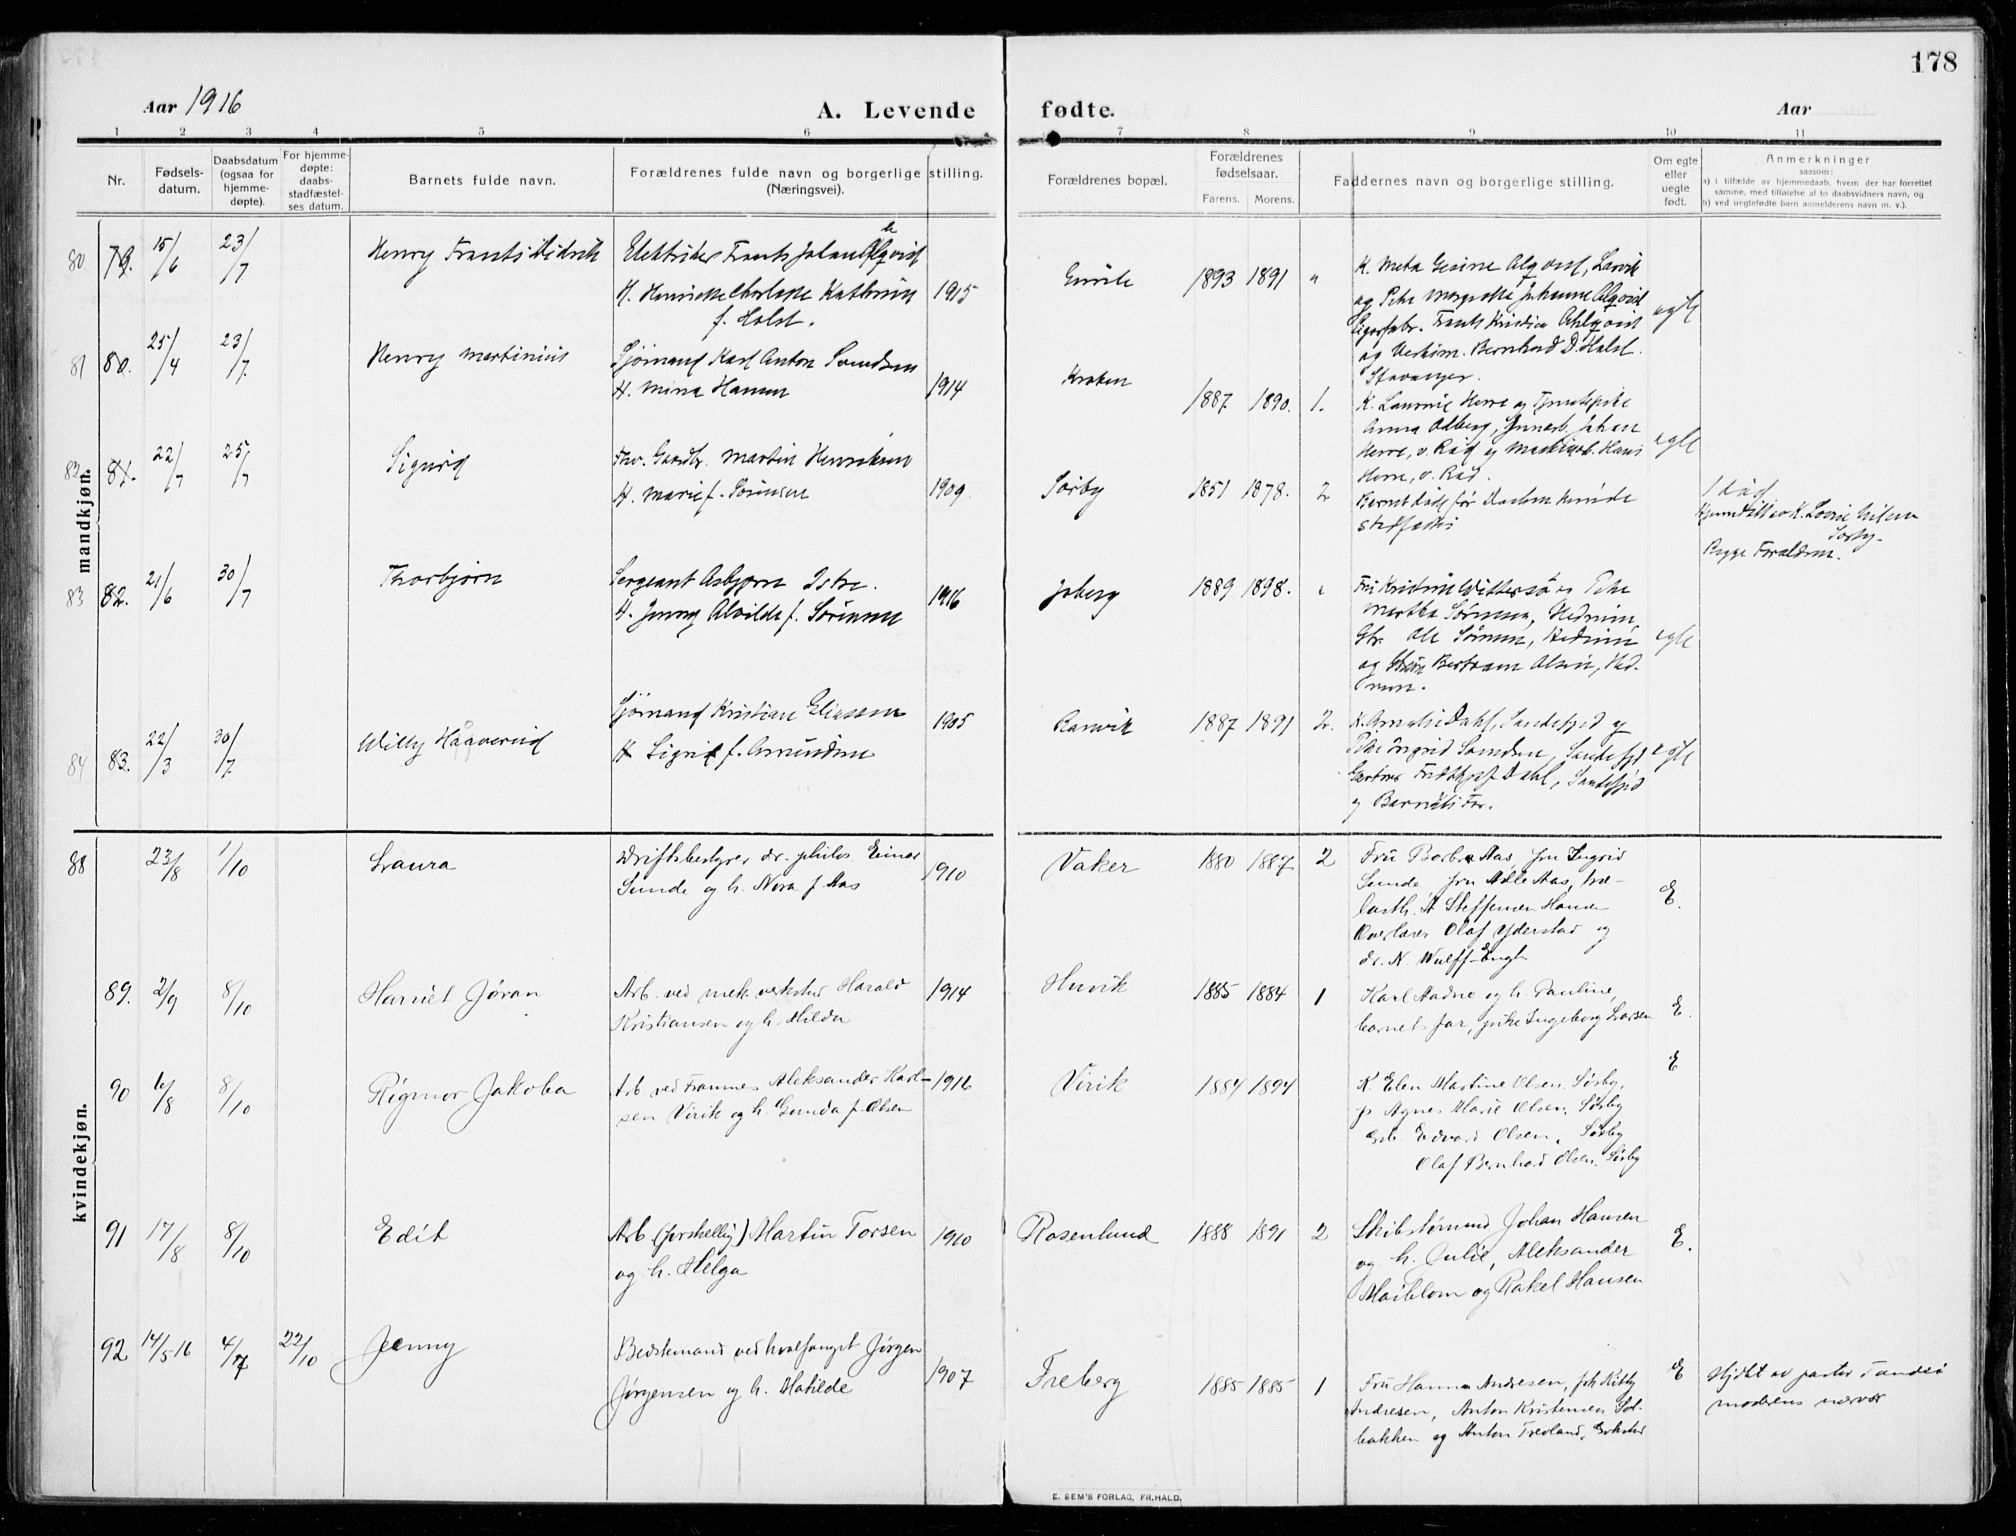 178
Aar 1916
A. Levende fødte.
Aar
1 2 3 4 5 6 7 8 9 10 11
Nr.
Fødsels-
datum.
Daabsdatum
(ogsaa for
hjemme-
døpte).
For hjemme-
døpte:
daabs-
stadfæstel-
ses datum.
Barnets fulde navn.
Forældrenes fulde navn og borgerlige stilling.
(Næringsvei).
Forældrenes bopæl.
Forældrenes
fødselsaar.
Farens. Morens.
Faddernes navn og borgerlige stilling.
Om egte
eller
uegte
født.
Anmerkninger
saasom:
a) i tilfælde av hjemmedaab, hvem der har forrettet
samme, med tilføielse af to daabsvidners navn, og
b) ved uegtefødte barn anmelderens navn m. v.).
mandkjøn.
80 79. 15/6 23/7
Henry Frants Didrik
Elektriker Frants Johan Ahlqvist
H. Henriette Charlotte Kathrine
f. Holst.
1915
1893 1891 "
K. Meta Gesine Alqvist, Larvik
og Pike Margrethe Johanne Alqvist
Frants Kristian Ahlqvist
og Bernhard D. Holst.
Stavanger.
egte
81 80. 25/4 23/7
Henry Martinius
Sjømand Karl Anton Svendsen
H. Mina Hansen
1914
Kraken
1887 1890. 1.
K. Laurine Herre og
Anna Ahlberg, Johan
Herre, v. Rød og Hans
Herre, v. Rød.
egte
82 81. 22/7 25/7
Sigurd
Martin Henriksen
H. Marie f. Sørensen
1909
Sørby
1851 1878. 2
Barnet døde før Daaben kunde
stadfæstes
1 Død
Hjemmedøbt av K. Lovise Nilsen
Sørby.
Begge Forældrene.
83 82. 21/6 30/7
Thorbjørn
Sergeant Asbjørn Istre.
H. Jenny Alvilde f. Sørensen
1916
Joberg
1889 1898.
Fru Kristine Wittersø og Pike
Martha Sørensen, Hedrum,
Gbr. Ole Sørensen, Hedrum
og Bertram Olsen, Hed-
rum.
egte
84 83. 22/3 30/7
Willy Haaverud
Sjømand Kristian Eliassen
H Sigrid f. Amundsen
1905
Ranvik
1887 1891 2.
K. Amalie Dahl, Sandefjord og
Pike Ingrid Svendsen, Sandefjord
Gartner Fridthjof Dahl, Sandefjord
og Barnets Far.
egte
kvindekjøn.
88 23/8 1/10
Laura
Driftsbestyrer dr. philos. Einar
Sunde og h. Nora f. Aas
1910
Vaker
1880 1887 2
Fru Borbra Aas, fru Ingrid
Sunde, fru Adle Aas, træ-
lasth. A Steffensen Hansen
Overlærer Olaf Yderstad og
dr. N. Wulff-Engh
E.
89. 2/9 8/10
Harriet Jøran
Arb. ved mek. verksted Harald
Kristiansen og h. Hilda
1914
Huvik
1885 1884 1
Karl Aadne og h. Pauline,
barnets far, pike Ingeborg Larsen
E.
90 6/8 8/10
Rigmor Jakoba
Arb ved Framnes Aleksander Karl-
sen Virik og h Gunda f. Olsen
1916
Virik
1884 1894
K Elen Martine Olsen. Sørby,
p. Agnes Marie Olsen. Sørby
Gbr. Edvard Olsen, Sørby
Olaf Bernhard Olsen. Sørby
E
91 17/8 8/10
Edit
Arb (forskellig) Martin Torsen
og h. Helga
1910
Rosenlund
1888 1891 2
Skibstømmand Johan Hansen
og h. Julie, Aleksander
Maiblom og Rakel Hansen
E.
92 14/5-16 4/7 22/10
Jenny
Bedstemand ved hvalfangst Jørgen
Jørgensen og h. Matilde
1907
Freberg
1885 1885 1
Fru Hanna Andresen, frk Kitty
Andresen, Anton Kristensen Sol-
bakken og Anton Trevland, Gokstad
E
Hjdbt av pastor Tandsø
moderens nærvær
E. SEM'S FORLAG, FR.HALD.